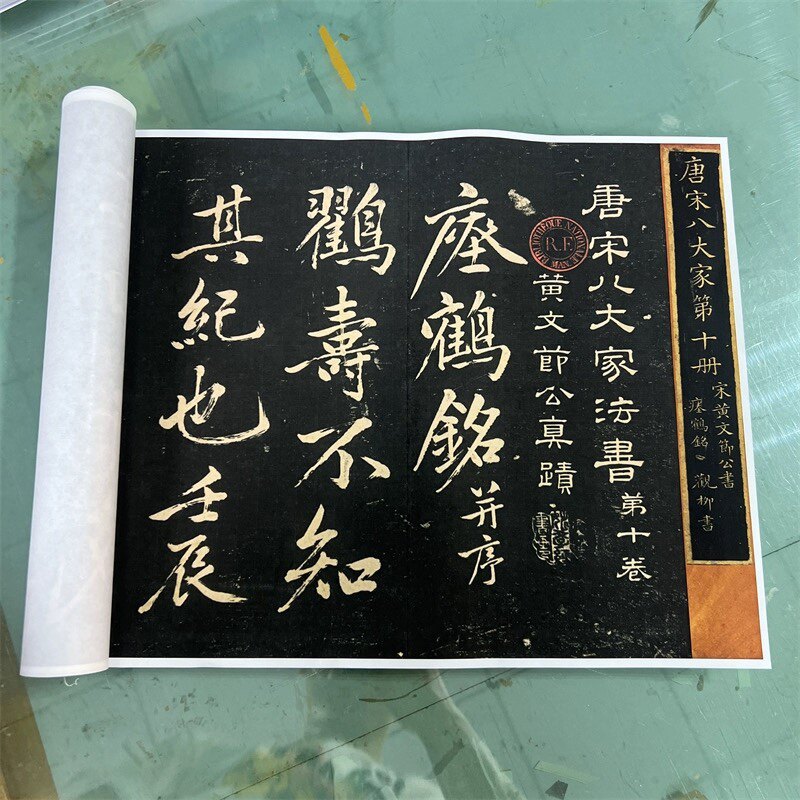 唐宋八大家第十册
宋黄文節公書
瘞鶴銘 觀柳書
唐宋八大家法書第十卷
黄文節公真蹟
BIBLIOTHEQUE NATIONALE
R.F.
MAN.
瘞鶴銘并序
鸐壽不知
其紀也壬辰